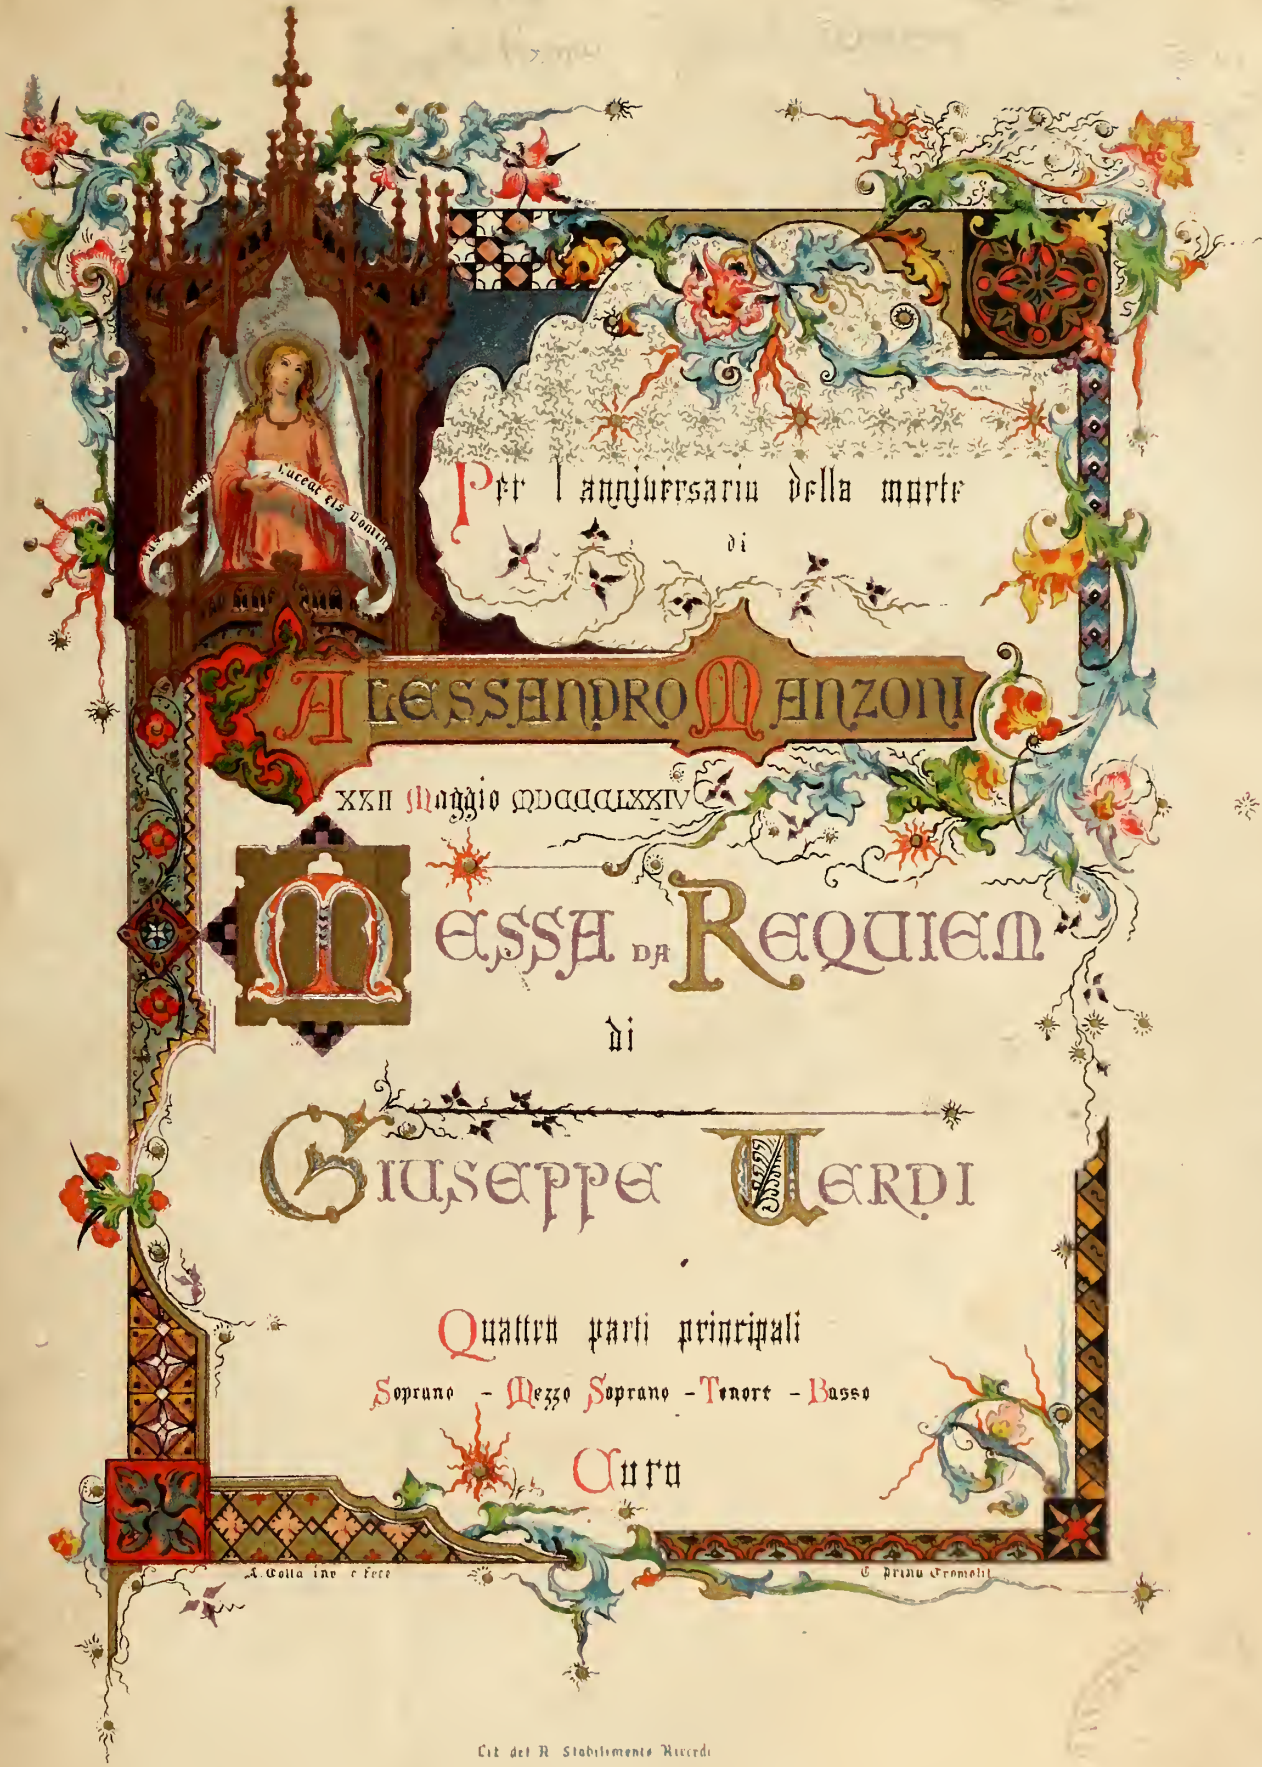 Luceat eis Domine
Per l anniversario della morte
di
ALESSANDRO MANZONI
XXII Maggio MDCCCLXXIV
MESSA DA REQUIEM
di
GIUSEPPE VERDI
Quattro parti principali
Soprano - Mezzo Soprano - Tenore - Basso
Coro
A. Colla inv e fece
Cromolit
Lit del R Stabilimento Ricordi